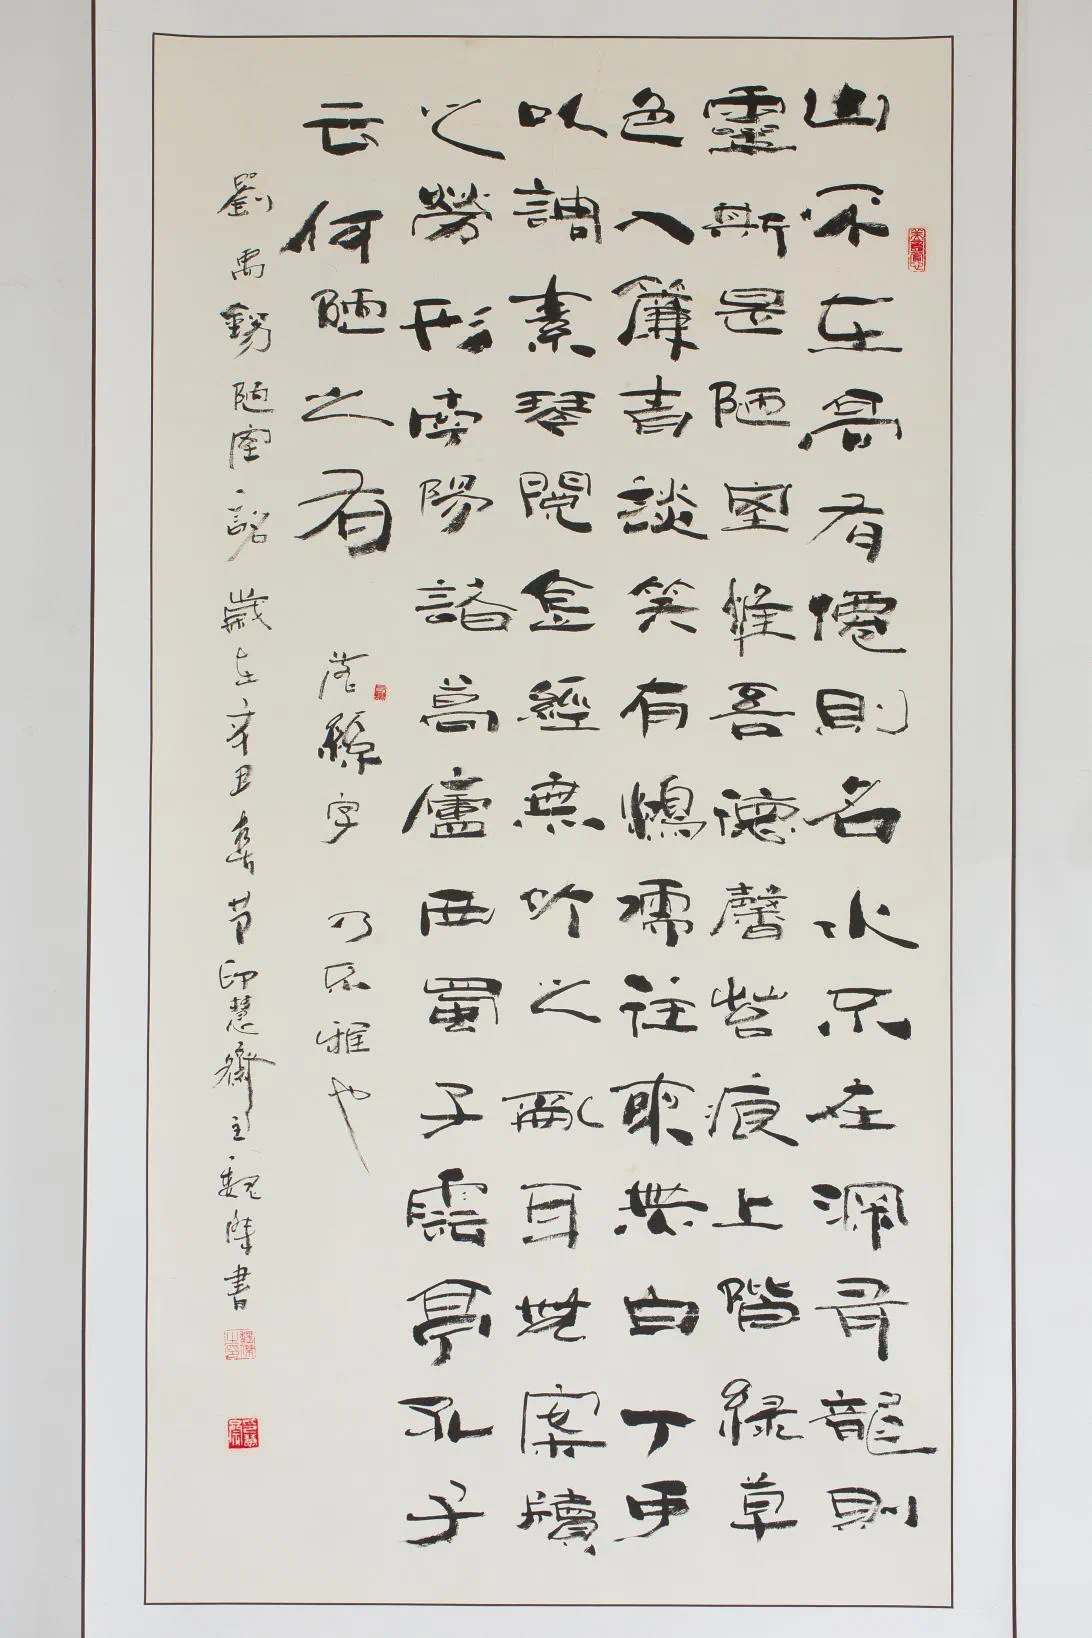 山不在高有僊則名水不在深有龍則
靈斯是陋室惟吾德馨苔痕上階綠草
色入簾青談笑有鴻儒往來無白丁可
以調素琴閱金經無竹之亂耳無案牘
之勞形南陽諸葛廬西蜀子雲亭孔子
云何陋之有 落絲字 乃不雅也
劉禹錫陋室銘歲在辛丑春节印慧齋主魏傑書